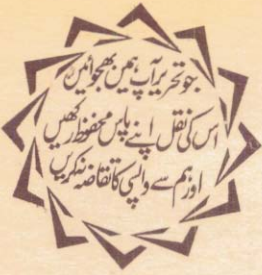 جو تحریر آپ ہمیں بھجوائیں
اس کی نقل اپنے پاس محفوظ رکھیں
اور ہم سے واپسی کا تقاضہ نہ کریں